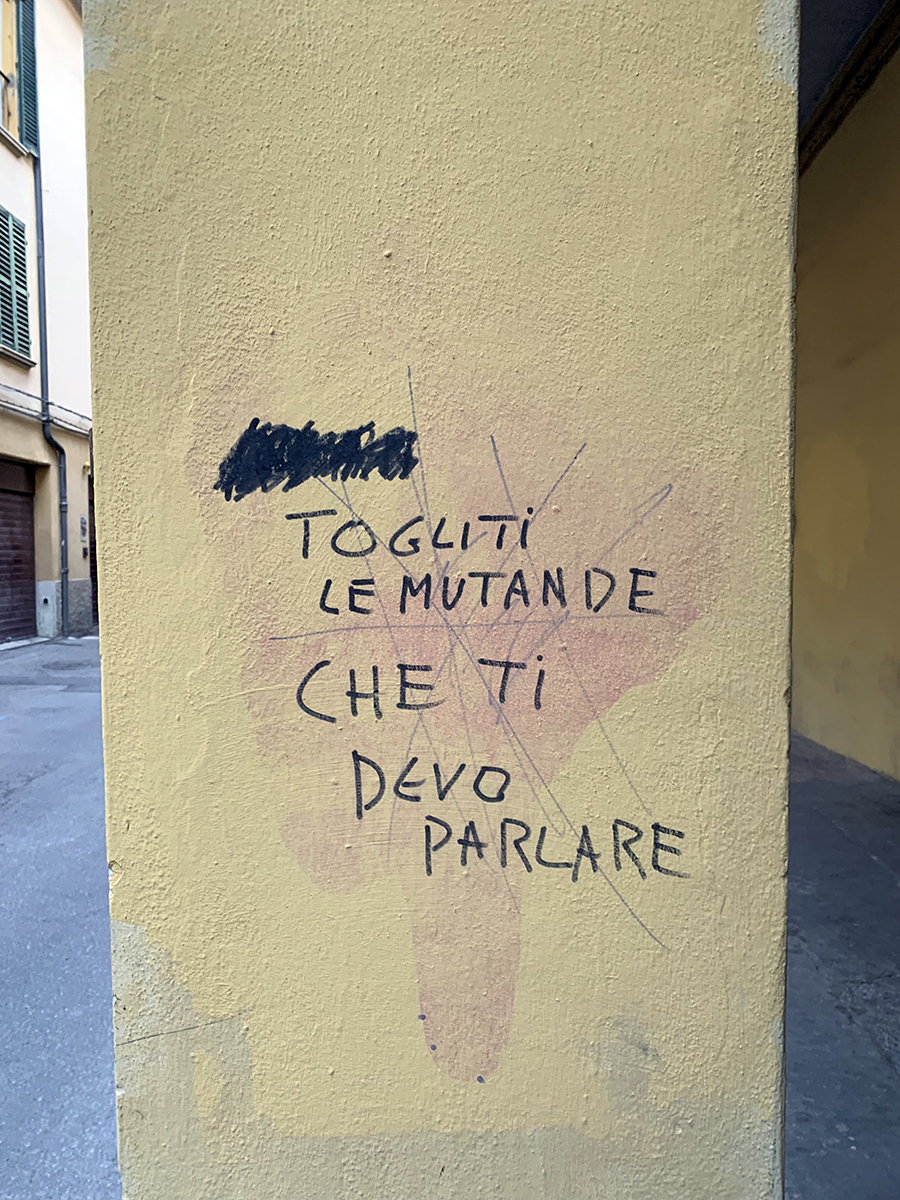 TOGLITI
LE MUTANDE
CHE TI
DEVO
PARLARE